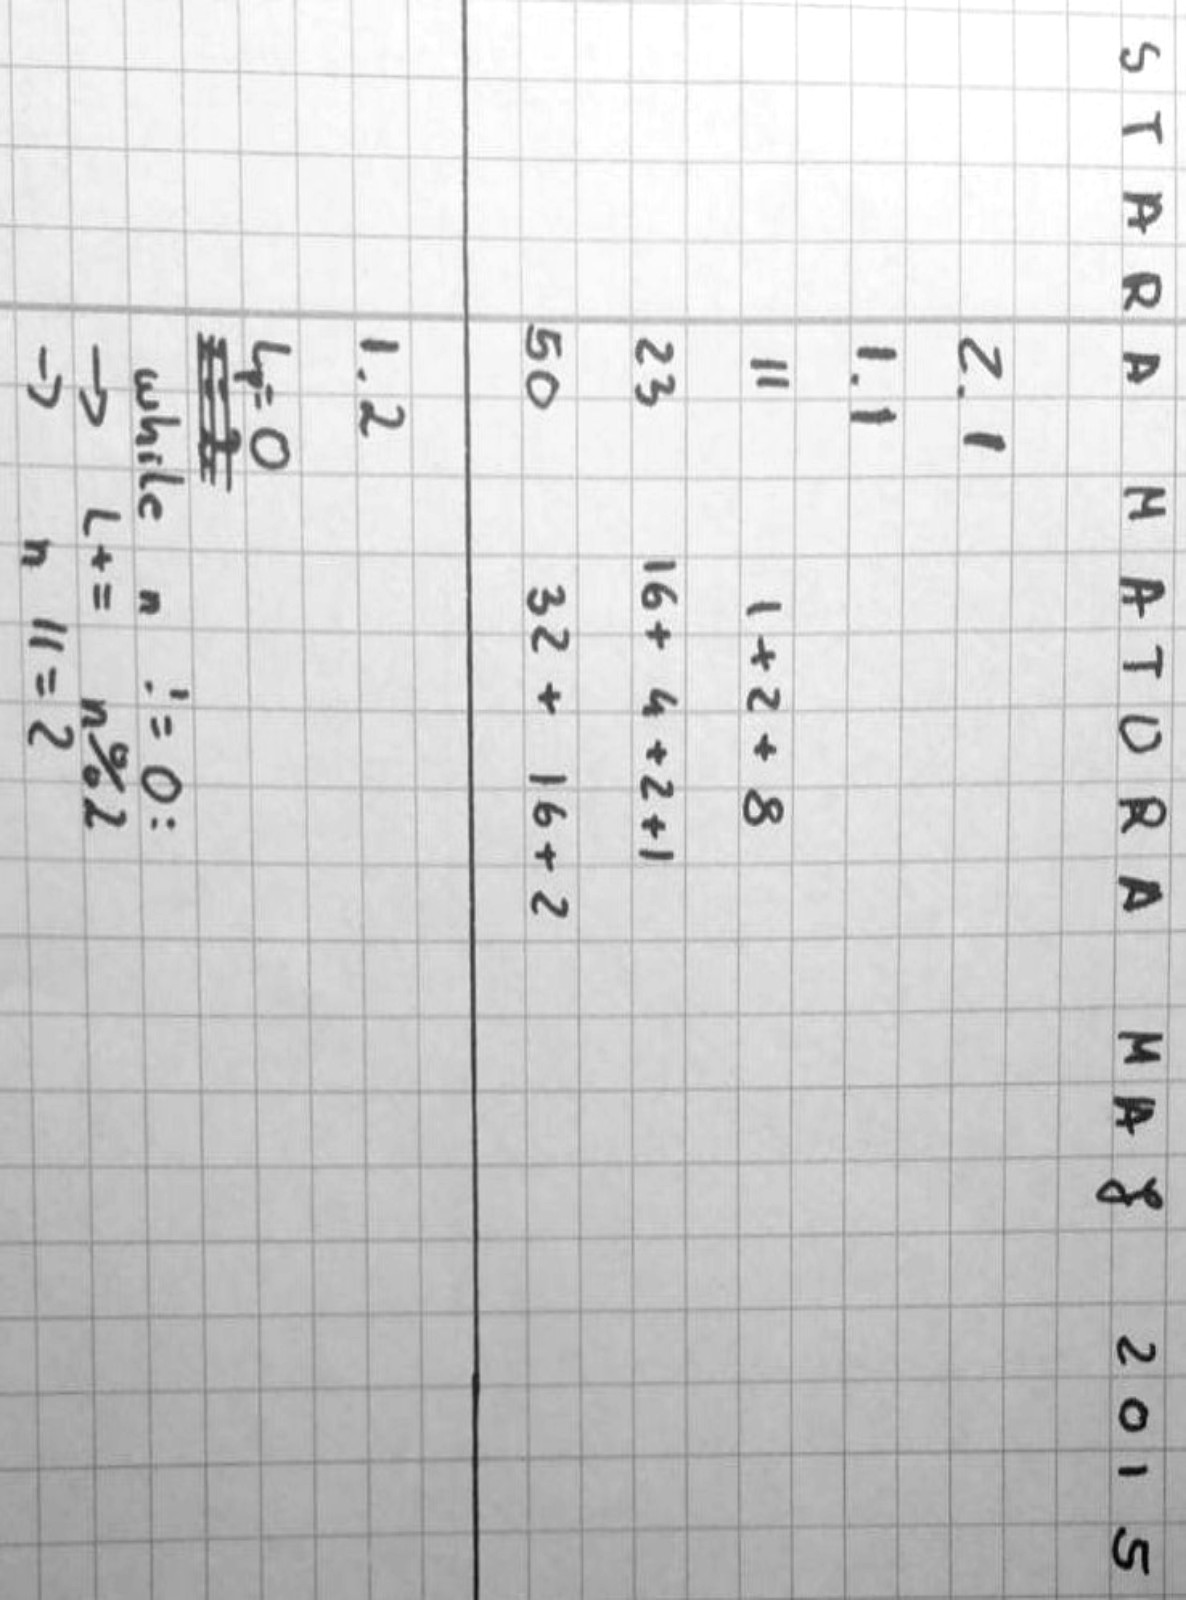 STARA MATURA MAJ 2015
2.1
1.1
11 1+2+8
23 16+ 4+2+1
50 32 + 16+2
1.2
Lp=0
while n != 0:
→ L+= n%2
→ n //= 2